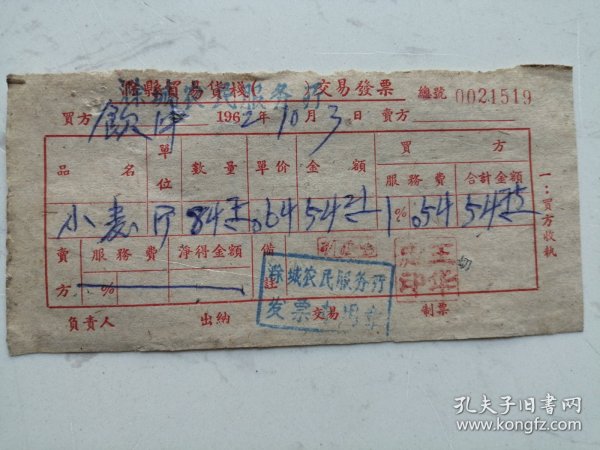 滁縣貿易貨棧( 交易發票 總號 0021519
滁城农民服务行
買方 飲 1962年10月3日 賣方
品名 單位 數量 單价 金額 買方
服務費 合計金額
小麦 斤 84 .64 54 1% .54 54
賣方 服務費 淨得金額 備註
%
滁城农民服务行
发票专用章
負責人 出納 交易 制票
一:買方收執
孔夫子旧书网
www.kongfz.com